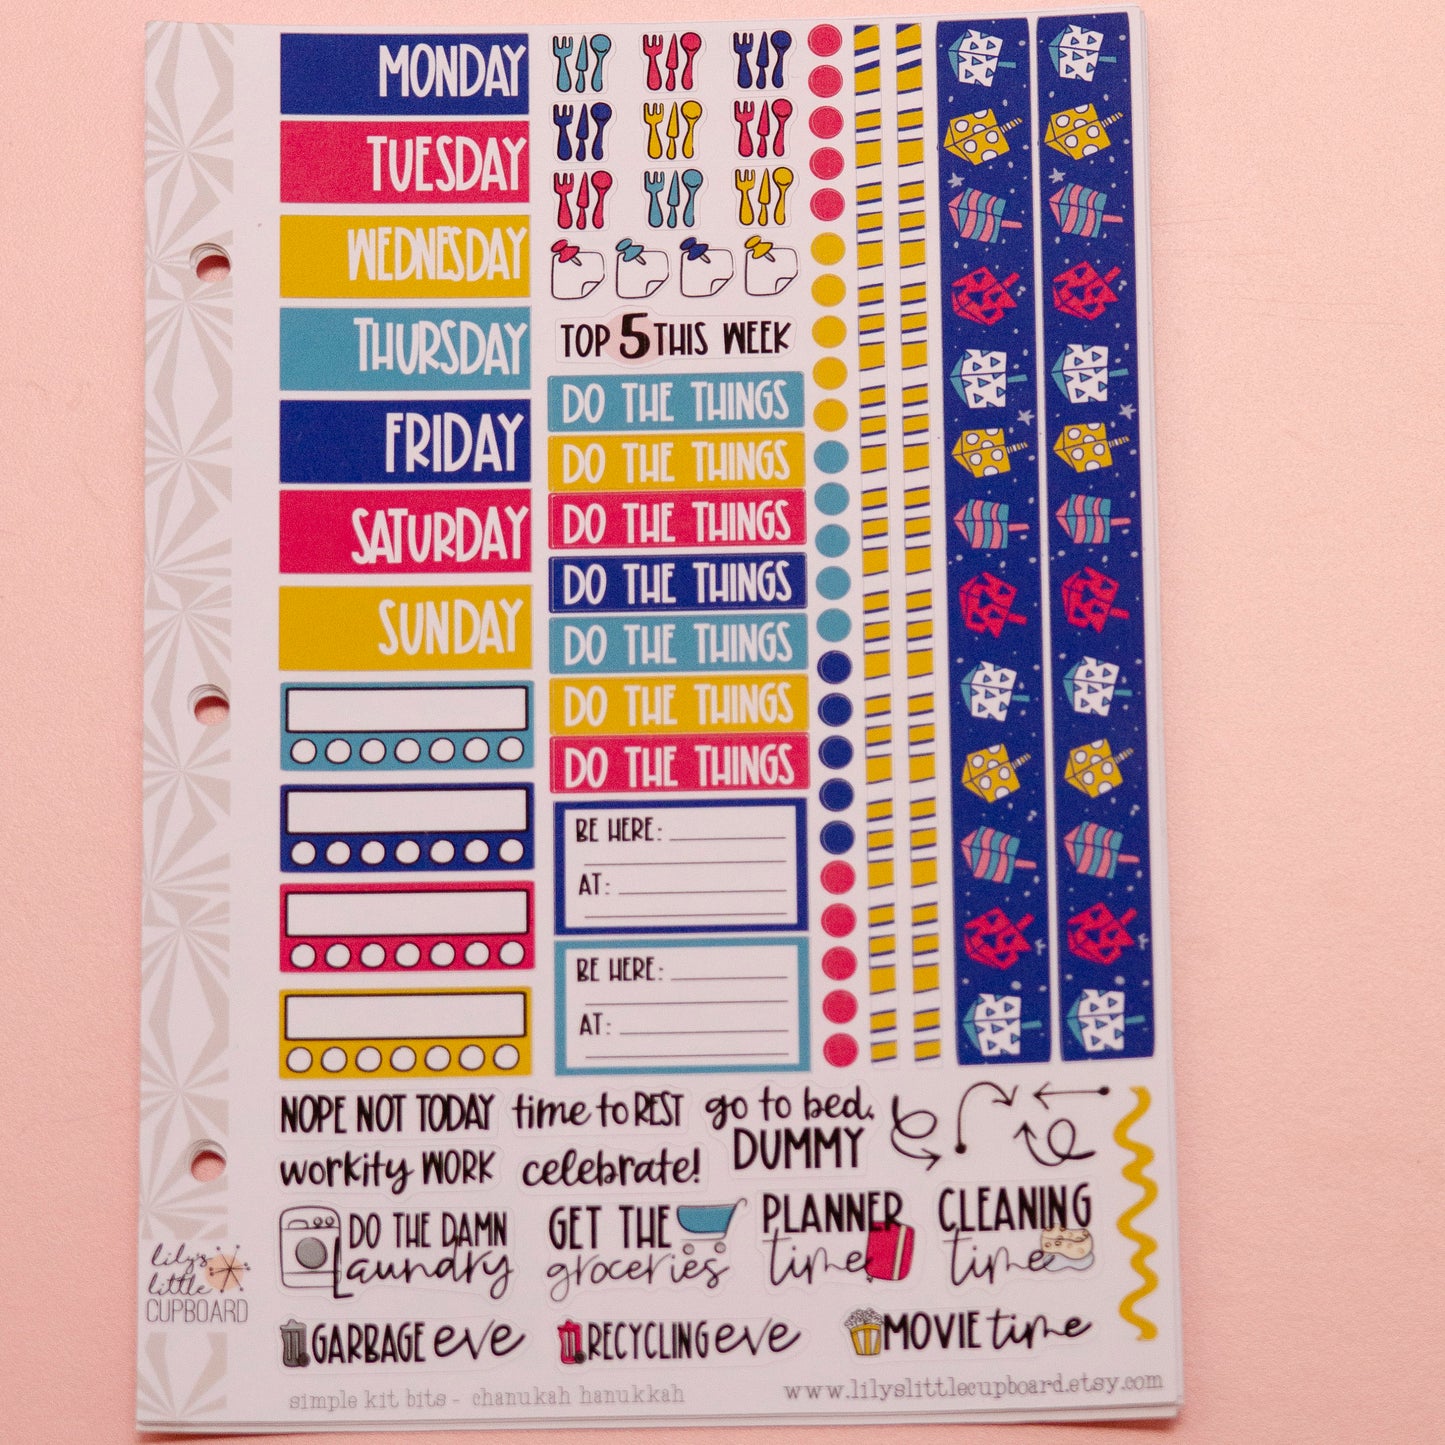 MONDAY
TUESDAY
WEDNESDAY
THURSDAY
FRIDAY
SATURDAY
SUNDAY
TOP 5 THIS WEEK
DO THE THINGS
DO THE THINGS
DO THE THINGS
DO THE THINGS
DO THE THINGS
DO THE THINGS
DO THE THINGS
BE HERE:
AT:
BE HERE:
AT:
NOPE NOT TODAY
time to REST
go to bed,
DUMMY
workity WORK
celebrate!
DO THE DAMN
Laundry
GET THE
groceries
PLANNER
time
CLEANING
time
GARBAGE eve
RECYCLING eve
MOVIE time
lily's
little
CUPBOARD
simple kit bits - chanukah hanukkah
www.lilyslittlecupboard.etsy.com